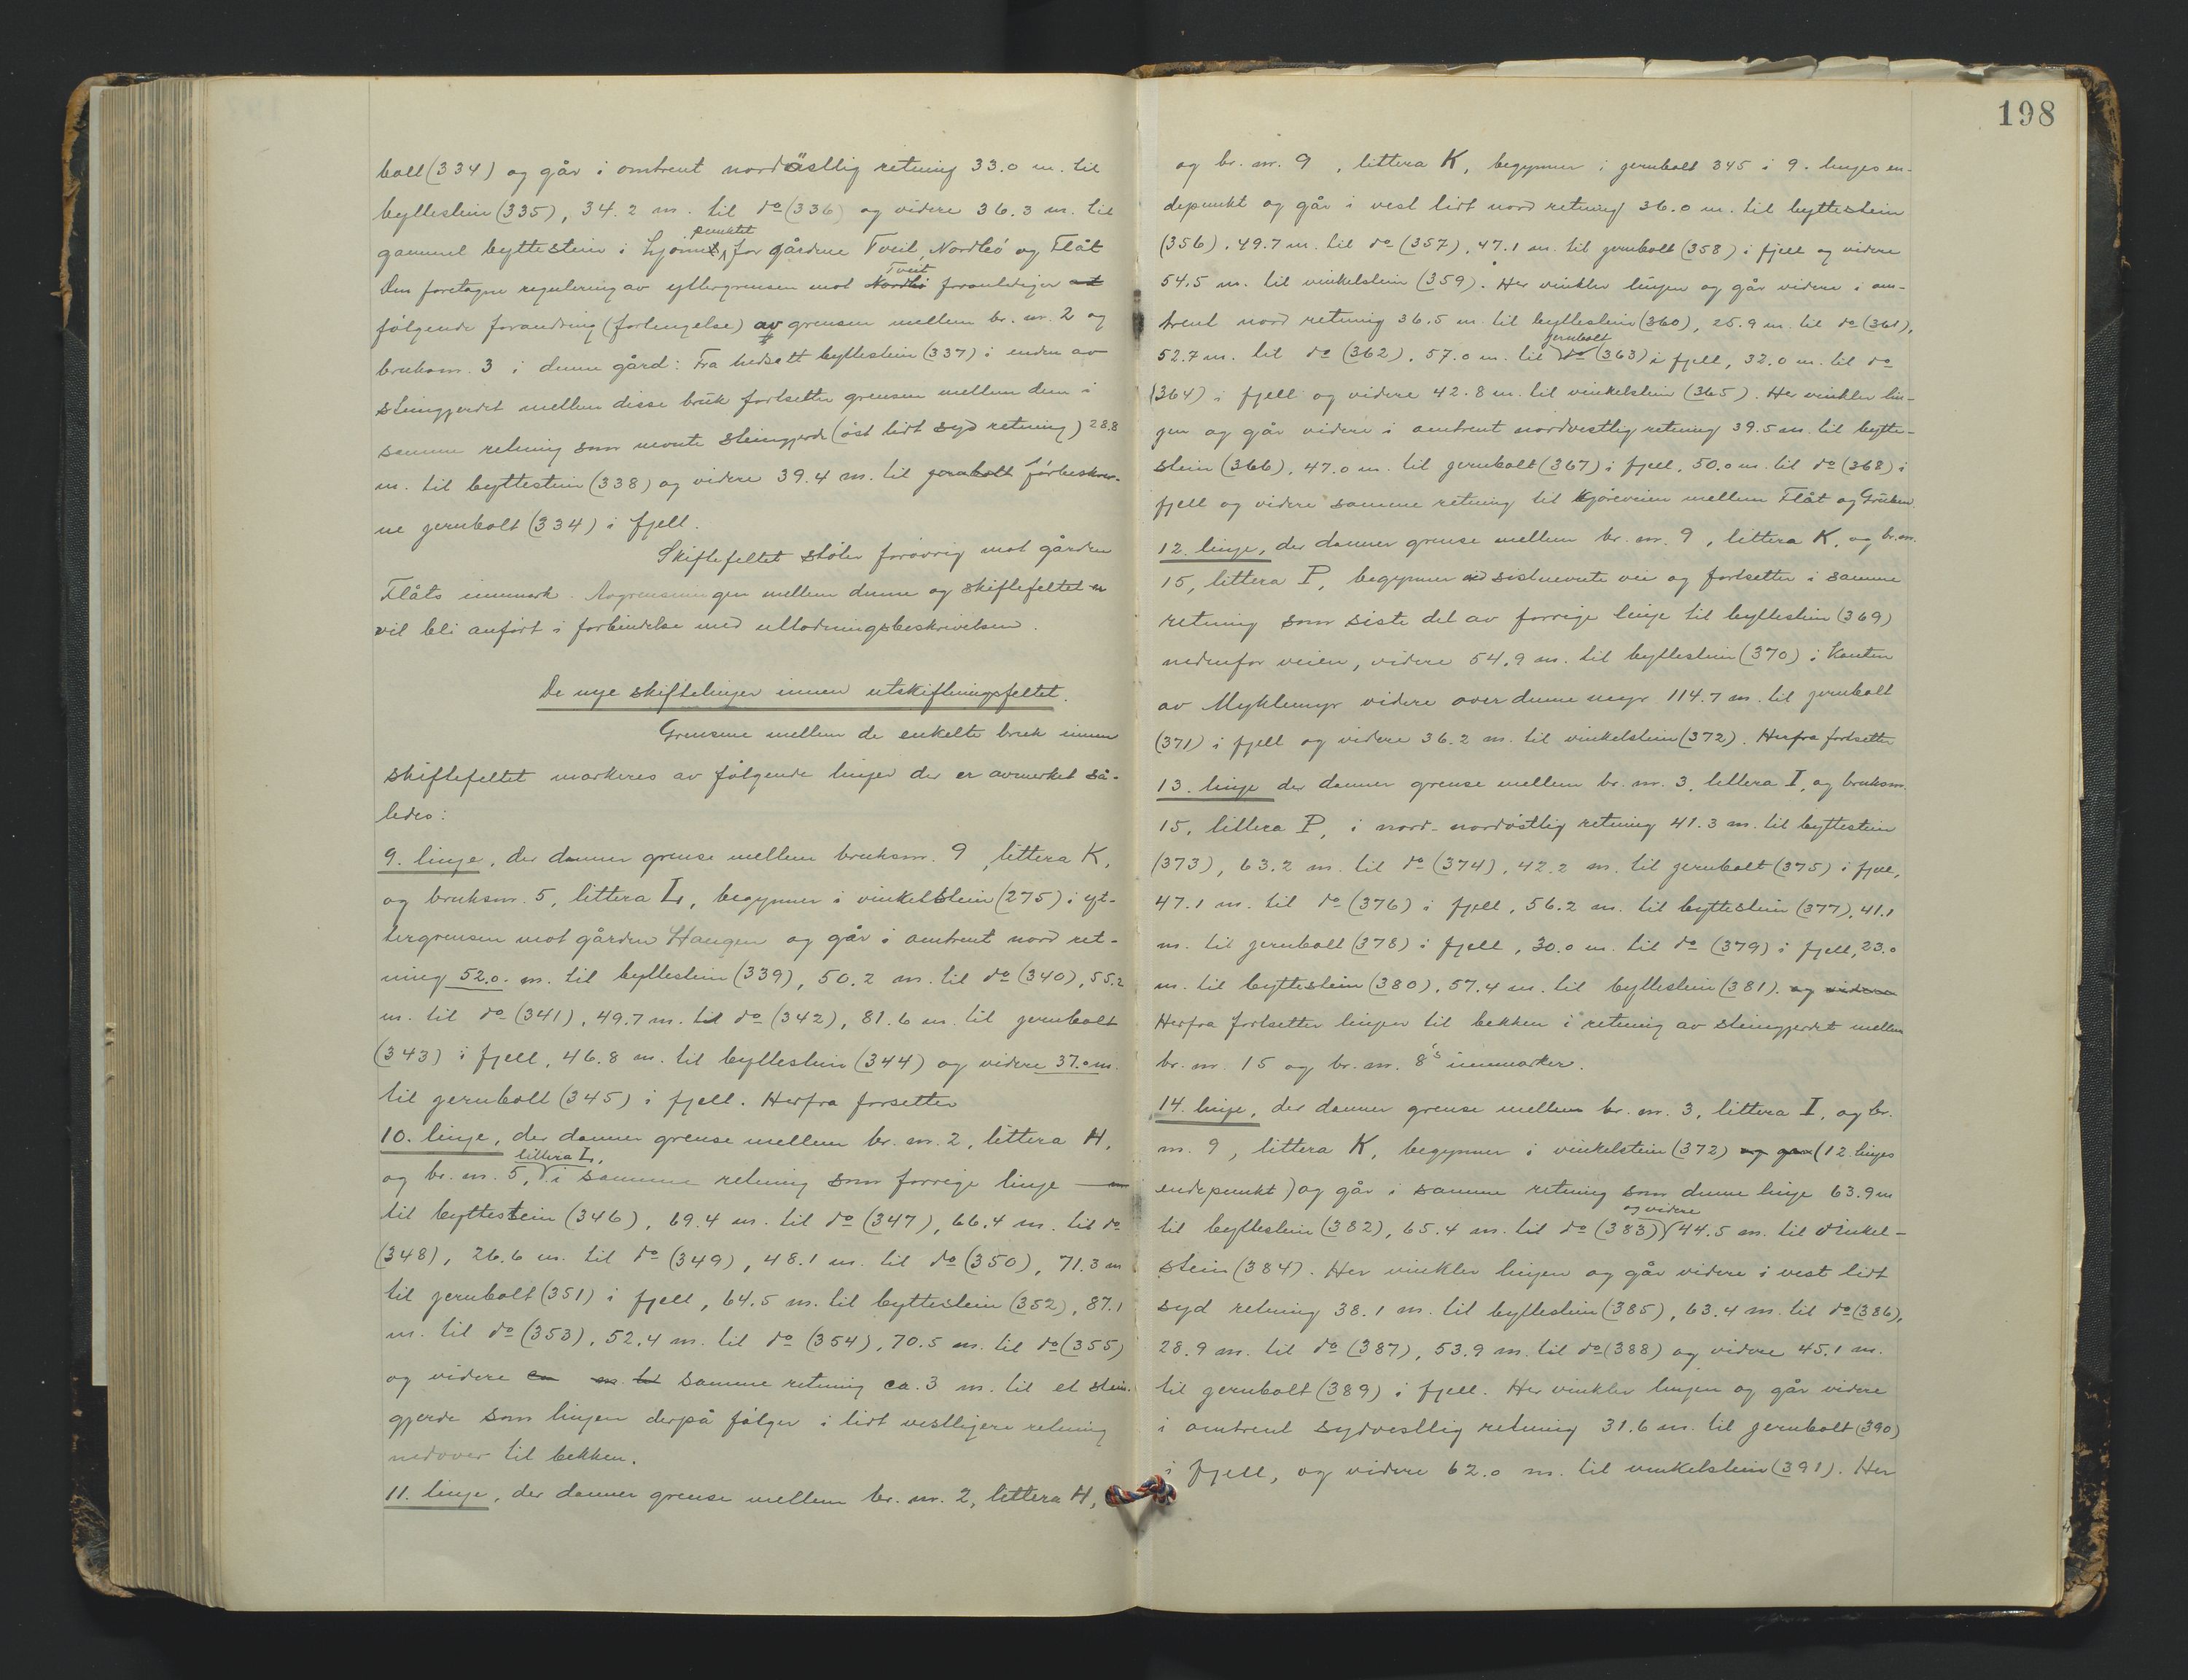 bolt (334) og går i omtrent nordöstlig retning 33.0 m. til
byttestein (335), 34.2 m. til do (336) og videre 36.3 m. til
gammel byttestein i hjörnepunktet for gårdene Tveit, Nordbö og Flåt
Den foretagne regulering av yttergrensen mot Nordbö Tveit foranlediger at
fölgende forandring (forlengelse) av grensen mellem br. nr. 2 og
bruksnr. 3 i denne gård: Fra nedsatt byttestein (337) i enden av
steingjerdet mellem disse bruk fortsetter grensen mellem dem i
samme retning som nevnte steingjerde (öst litt syd retning) 28.8
m. til byttestein (338) og videre 39.4 m. til jernbolt förbeskrev-
ne jernbolt (334) i fjell.
Skiftefeltet stöter forövrig mot gården
Flåts innmark. Avgrensningen mellem denne og skiftefeltet er
vil bli anfört i forbindelse med utlodningsbeskrivelsen.
De nye skiftelinjer innen utskiftningsfeltet.
Grensene mellem de enkelte bruk innen
skiftefeltet markeres av fölgende linjer der er avmerket så-
ledes:
9. linje, der danner grense mellem bruksnr. 9, littera K,
og bruksnr. 5, littera L, begynner i vinkelstein (275) i yt-
tergrensen mot gården Haugen og går i omtrent nord ret-
ning 52.0. m. til byttestein (339), 50.2 m. til do (340), 55.2
m. til do (341), 49.7 m. til do (342), 81.6 m. til jernbolt
(343) i fjell, 46.8 m. til byttestein (344) og videre 37.0 m.
til jernbolt (345) i fjell. Herfra forsetter
10. linje, der danner grense mellem br. nr. 2, littera H,
og br. nr. 5, littera L, i samme retning som forrige linje — m
til byttestein (346), 69.4 m. til do (347), 66.4 m. til do
(348), 26.6 m. til do (349), 48.1 m. til do (350), 71.3 m
til jernbolt (351) i fjell, 64.5 m. til byttestein (352), 87.1
m. til do (353), 52.4 m. til do (354), 70.5 m. til do (355)
og videre ca m. til samme retning ca. 3 m. til et stein-
gjerde som linjen derpå fölger i litt vestligere retning
nedover til bekken.
11. linje, der danner grense mellem br. nr. 2, littera H,
198
og br. nr. 9, littera K, begynner i jernbolt 345 i 9. linjes en-
depunkt og går i vest litt nord retning 36.0 m. til byttestein
(356), 49.7 m. til do (357), 47.1 m. til jernbolt (358) i fjell og videre
54.5 m. til vinkelstein (359). Her vinkler linjen og går videre i om-
trent nord retning 36.5 m. til byttestein (360), 25.9 m. til do (361),
52.7 m. til do (362), 57.0 m. til do jernbolt (363) i fjell, 32.0 m. til do
(364) i fjell og videre 42.8 m. til vinkelstein (365). Her vinkler lin-
jen og går videre i omtrent nordvestlig retning 39.5 m. til bytte-
stein (366), 47.0 m. til jernbolt (367) i fjell, 50.0 m. til do (368) i
fjell og videre samme retning til kjöreveien mellem Flåt og
12. linje, der danner grense mellem br. nr. 9, littera K, og br. nr.
15, littera P, begynner ved sistnevnte vei og fortsetter i samme
retning som siste del av forrige linje til byttestein (369)
nedenfor veien, videre 54.9 m. til byttestein (370) i kanten
av Myklemyr videre over denne myr 114.7 m. til jernbolt
(371) i fjell og videre 36.2 m. til vinkelstein (372). Herfra fortsetter
13. linje der danner grense mellem br. nr. 3, littera I, og bruksnr.
15, littera P, i nord-nordöstlig retning 41.3 m. til byttestein
(373), 63.2 m. til do (374), 42.2 m. til jernbolt (375) i fjell,
47.1 m. til do (376) i fjell, 56.2 m. til byttestein (377), 41.1
m. til jernbolt (378) i fjell, 30.0 m. til do (379) i fjell, 23.0
m. til byttestein (380), 57.4 m. til byttestein (381). og videre
Herfra fortsetter linjen til bekken i retning av steingjerdet mellem
br. nr. 15 og br. nr. 8's innmarker.
14. linje, der danner grense mellem br. nr. 3, littera I, og br.
nr. 9, littera K, begynner i vinkelstein (372) og går (12. linjes
endepunkt) og går i samme retning som denne linje 63.9 m
til byttestein (382), 65.4 m. til do (383) og videre 44.5 m. til vinkel-
stein (384). Her vinkler linjen og går videre i vest litt
syd retning 38.1 m. til byttestein (385), 63.4 m. til do (386),
28.9 m. til do (387), 53.9 m. til do (388) og videre 45.1 m.
til jernbolt (389) i fjell. Her vinkler linjen og går videre
i omtrent sydvestlig retning 31.6 m. til jernbolt (390)
i fjell, og videre 62.0 m. til vinkelstein (391). Her